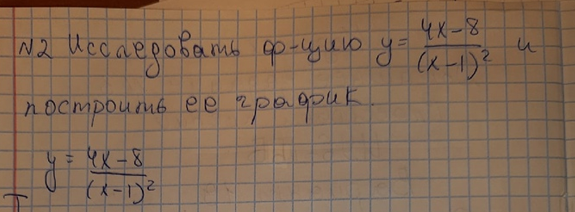 N2 Исследовать ф-цию y = (4x-8)/(x-1)² и
построить ее график.
y = (4x-8)/(x-1)²